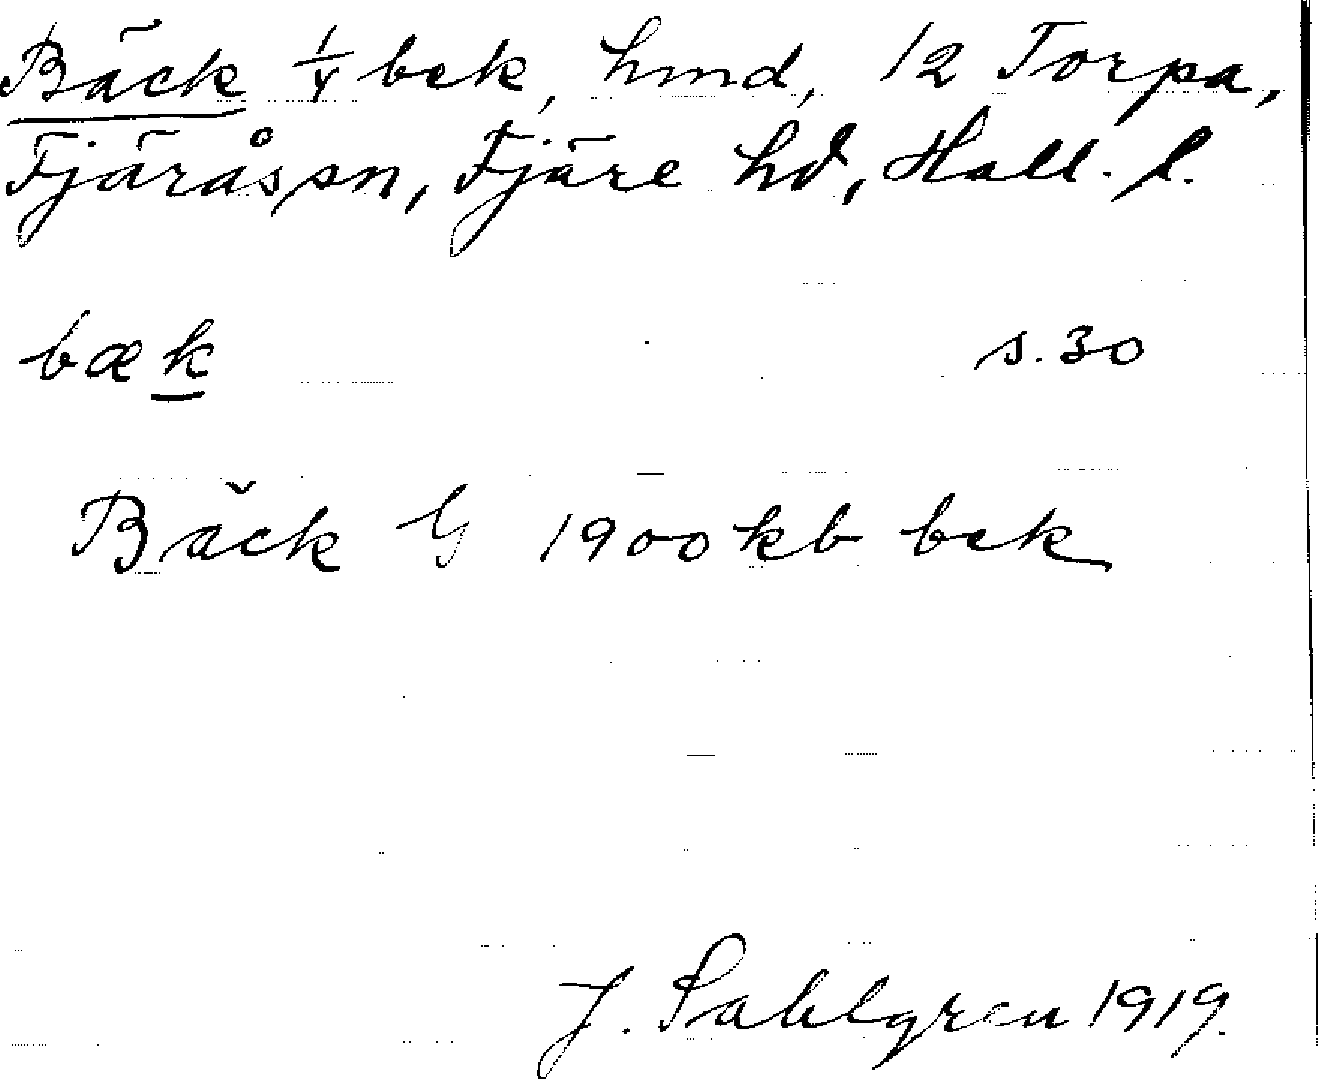 Bäck 1/4 bek, hmd, 12 Torpa,
Fjärås sn, Fjäre hd, Hall. l.
bæk s. 30
Bäck G 1900 kb bek
J. Sahlgren 1919.